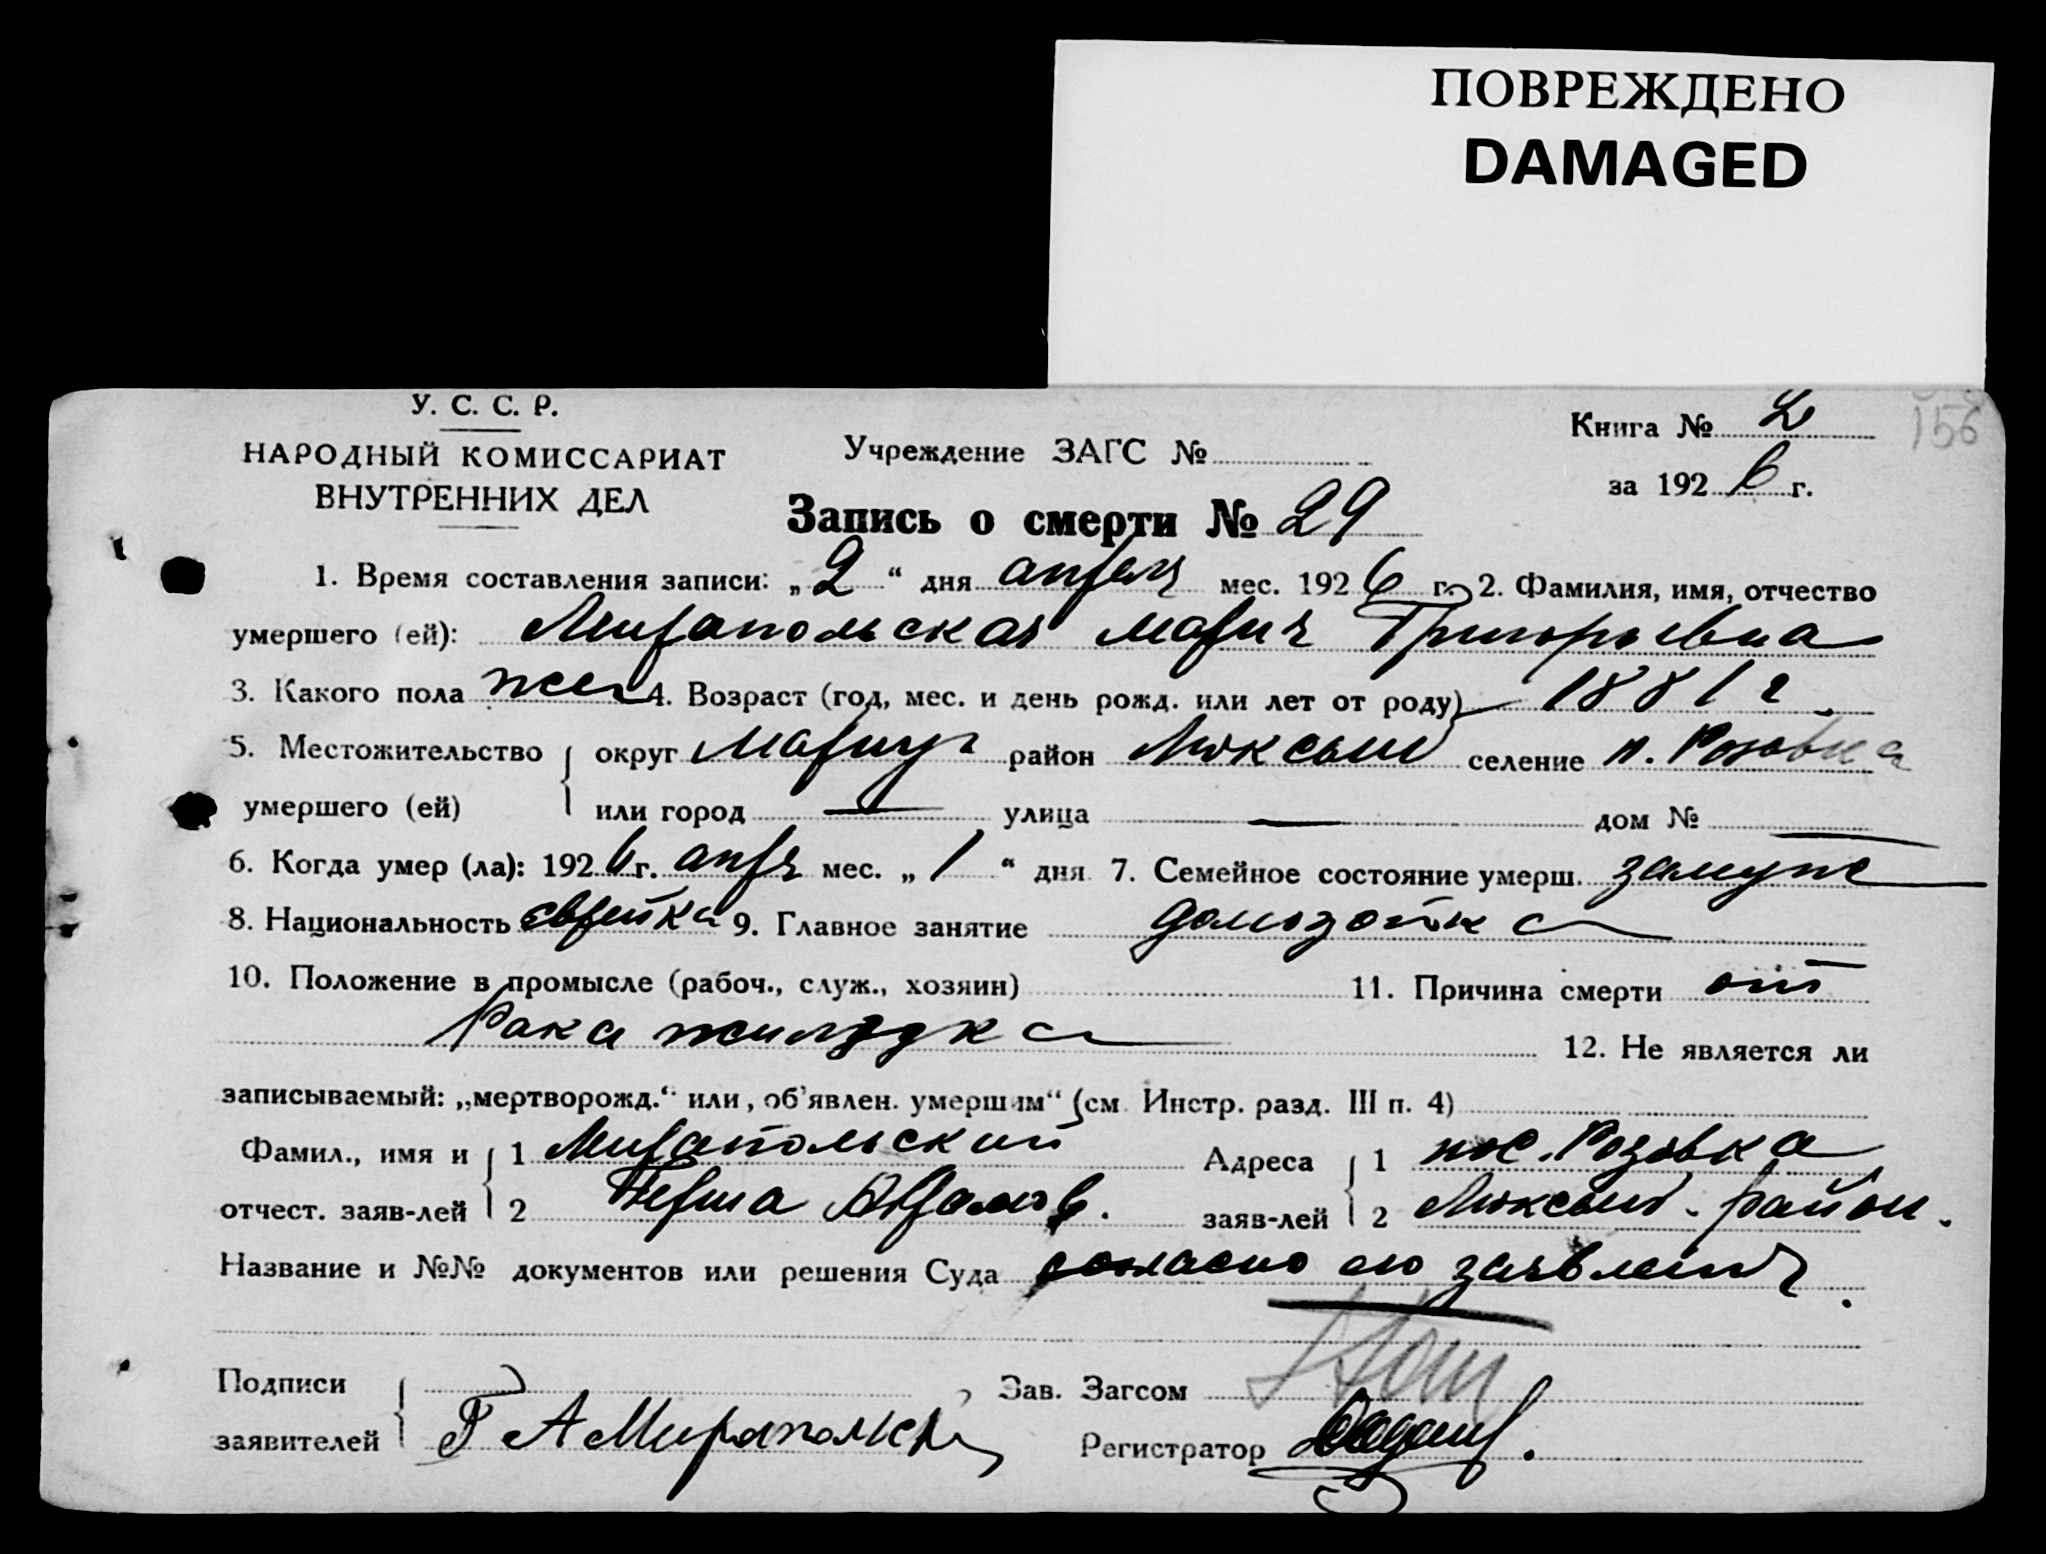 ПОВРЕЖДЕНО
DAMAGED
У. С. С. Р.
НАРОДНЫЙ КОМИССАРИАТ
ВНУТРЕННИХ ДЕЛ
Учреждение ЗАГС №
Книга № 2
156
за 1926 г.
Запись о смерти № 29
1. Время составления записи: „2“ дня апреля мес. 1926 г. 2. Фамилия, имя, отчество
умершего (ей): Мирапольская Мария Григорьевна
3. Какого пола жен 4. Возраст (год, мес. и день рожд. или лет от роду) 1881 г.
5. Местожительство округ Мариуп район Люксем селение п. Розовка
умершего (ей) или город — улица — дом № —
6. Когда умер (ла): 1926 г. апря мес. „1“ дня 7. Семейное состояние умерш. замуже
8. Национальность еврейка 9. Главное занятие домозяйка
10. Положение в промысле (рабоч., служ., хозяин) 11. Причина смерти от
Рака жилудка 12. Не является ли
записываемый: „мертворожд.“ или, об'явлен. умершим“ (см. Инстр. разд. III п. 4)
Фамил., имя и 1 Мирапольский Адреса 1 пос. Розовка
отчест. заяв-лей 2 Герша Абрамов. заяв-лей 2 Люксемб. район.
Название и №№ документов или решения Суда согласно его заявления.
Подписи Зав. Загсом
заявителей Г А Мирапольский Регистратор